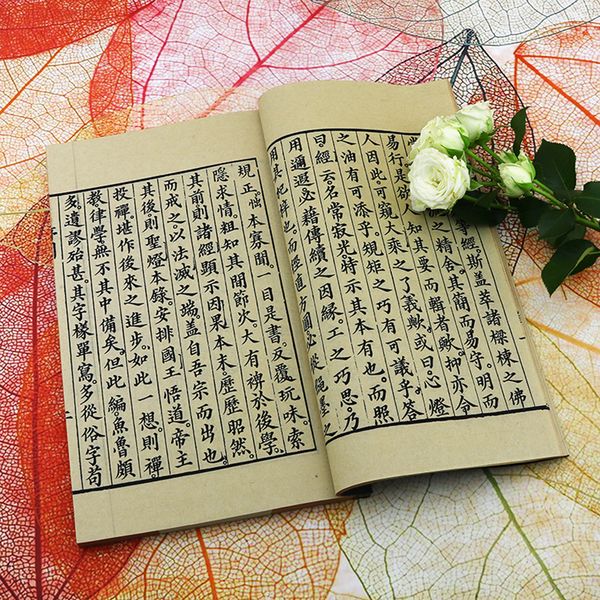 等經。斯蓋萃諸樑棟之佛
之精舍。其簡而易守。明而
易行。是欲人知其要而輯者歟。抑亦令
人因此可窺大乘之了義歟。或曰。心燈
之油有可添乎。規矩之巧有可議乎。答
曰。經云。名常寂光。特示其本有也。而照
用邇遐。必藉傳續之因緣。工之巧思。乃
規正。本寡聞。目是書。反覆玩味。索
隱求情。粗知其間節次。大有裨於後學。
其前則諸經顯示因果。本末歷歷昭然。
而戒之。以法滅之端。蓋自吾宗而出也
其後則聖燈本錄。安排國王悟道。帝主
投禪。堪作後來之進步。如此一想。則禪
教律學。無不其中備矣。但此編。魚魯頗
多。遺謬殆甚。其字樣單寫。多從俗字苟